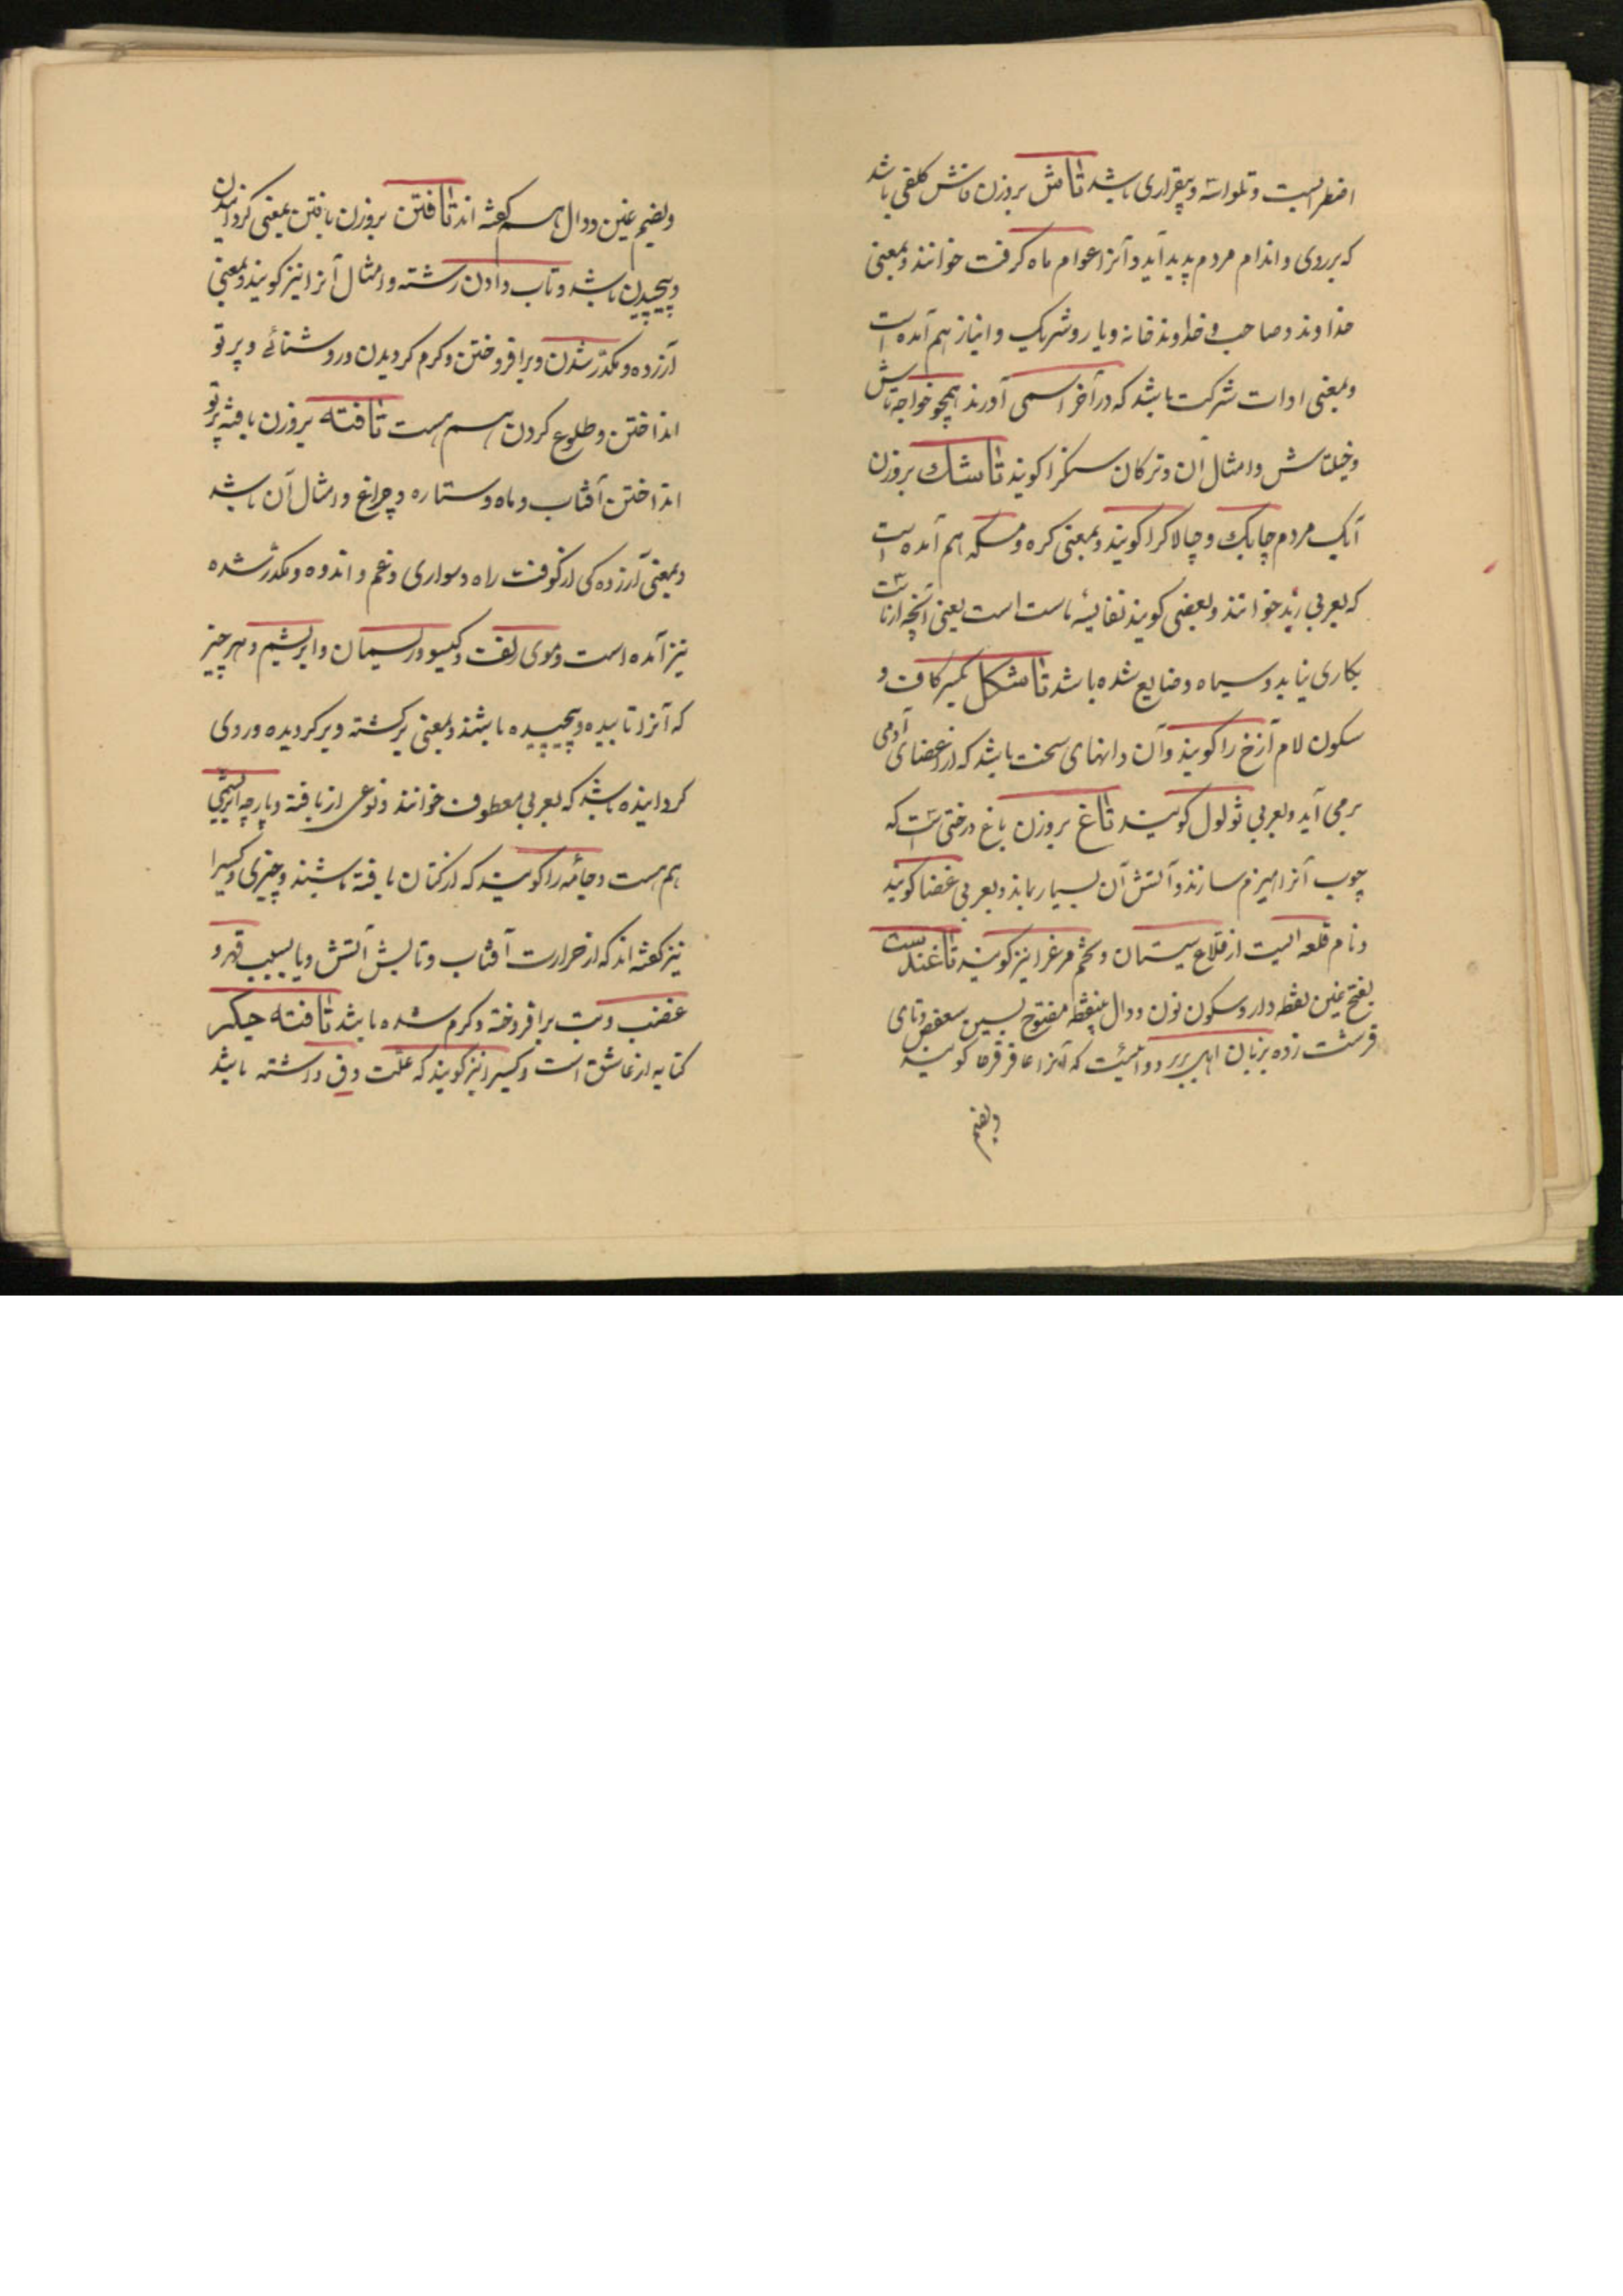 اضطرابست و تلواسه و بیقراری باشد تاش بروزن ماش کلفی باشد
که بر روی و اندام مردم پدید آید و آنرا عوام ماه کرفت خوانند و بمعنی
خداوند و صاحب و خداوند خانه و یار و شریک و انباز هم آمده است
و بمعنی ادات شرکت باشد که در آخر اسمی آورند همچو خواجه تاش
و خیلتاش و امثال آن و ترکان سنکرا کویند تاشک بروزن
آبک مردم چابک و چالاکرا کویند و بمعنی کره و مسکه هم آمده است
که بعربی زبد خوانند و بعضی کویند تفاله ماست است یعنی آنچه از ماست
بکاری نیاید و سیاه و ضایع شده باشد تاشکل بکسر کاف و
سکون لام آزخ را کویند و آن دانهای سخت باشد که از اعضای آدمی
بر می آید و بعربی ثولول کویند تاغ بروزن باغ درختی است که
چوب آنرا هیزم سازند و آتش آن بسیار بماند و بعربی غضا کویند
و نام قلعه ایست از قلاع سیستان و تخم مرغرا نیز کویند تاغندست
بفتح غین نقطه دار و سکون نون و دال بینقطه مفتوح بسین سعفص و تای
قرشت زده بزبان اهل بربر دوائیست که آنرا عاقرقرحا کویند
و بضم
و بضم غین و دال هم کفته اند تافتن بروزن بافتن بمعنی کردانیدن
و پیچیدن باشد و تاب دادن رشته و امثال آنرا نیز کویند و بمعنی
آزرده و مکدر شدن و برافروختن و کرم کردیدن و روشنائی و پرتو
انداختن و طلوع کردن هم هست تافته بروزن بافته پرتو
انداختن آفتاب و ماه و ستاره و چراغ و امثال آن باشد
و بمعنی آزرده کی از کوفت راه و سواری و غم و اندوه و مکدر شده
نیز آمده است و موی زلف و کیسو و ریسمان و ابریشم و هر چیز
که آنرا تابیده و پیچیده باشند و بمعنی برکشته و برکردیده و روی
کردانیده باشد که بعربی معطوف خوانند و نوعی از بافته و پارچه ابریشمی
هم هست و جامه را کویند که از کتان بافته باشند و چیزی و کسیرا
نیز کفته اند که از حرارت آفتاب و تابش آتش و یا بسبب قهر و
غضب و تب برافروخته و کرم شده باشد تافته جکر
کنایه از عاشق است و کسیرا نیز کویند که علت دق داشته باشد